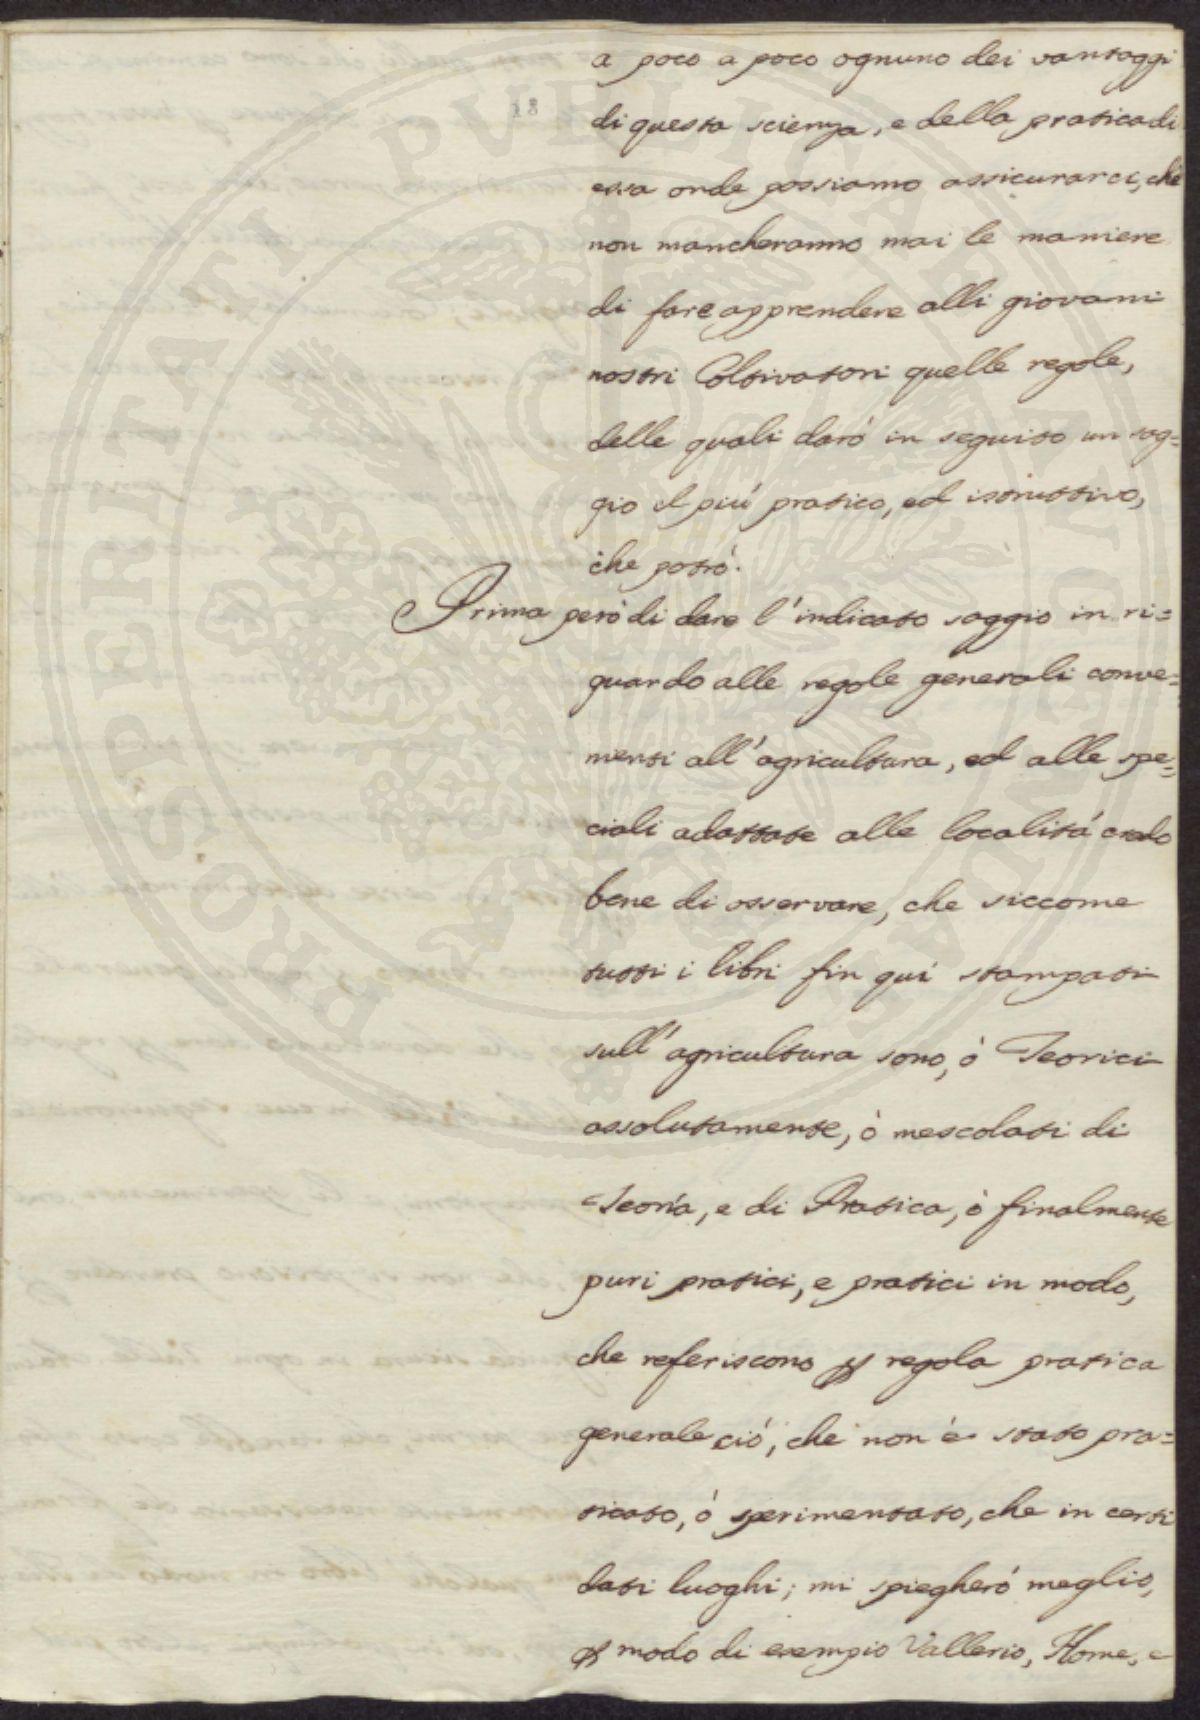 a poco a poco ognuno dei vantaggi
18
di questa scienza, e della pratica di
essa onde possiamo assicurarci, che
non mancheranno mai le maniere
di fare apprendere alli giovani
nostri Coltivatori quelle regole,
delle quali daró in seguito un sag=
gio il piú pratico, ed istruttivo,
che potró.
Prima peró di dare l'indicato saggio in ri=
guardo alle regole generali conve=
nienti all'agricultura, ed alle spe=
ciali adattate alle localitá credo
bene di osservare, che siccome
tutti i libri fin quí stampati
sull'agricultura sono, ó Teorici
assolutamente, ó mescolati di
Teoría, e di Pratica, ó finalmente
puri pratici, e pratici in modo,
che referiscono ꝑ regola pratica
generale ció, che non é stato pra=
ticato, ó sperimentato, che in certi
dati luoghi; mi spiegheró meglio,
ꝑ modo di esempio Vallerio, Home, e
PROSPERITATI PVBLICAE AVGENDAE